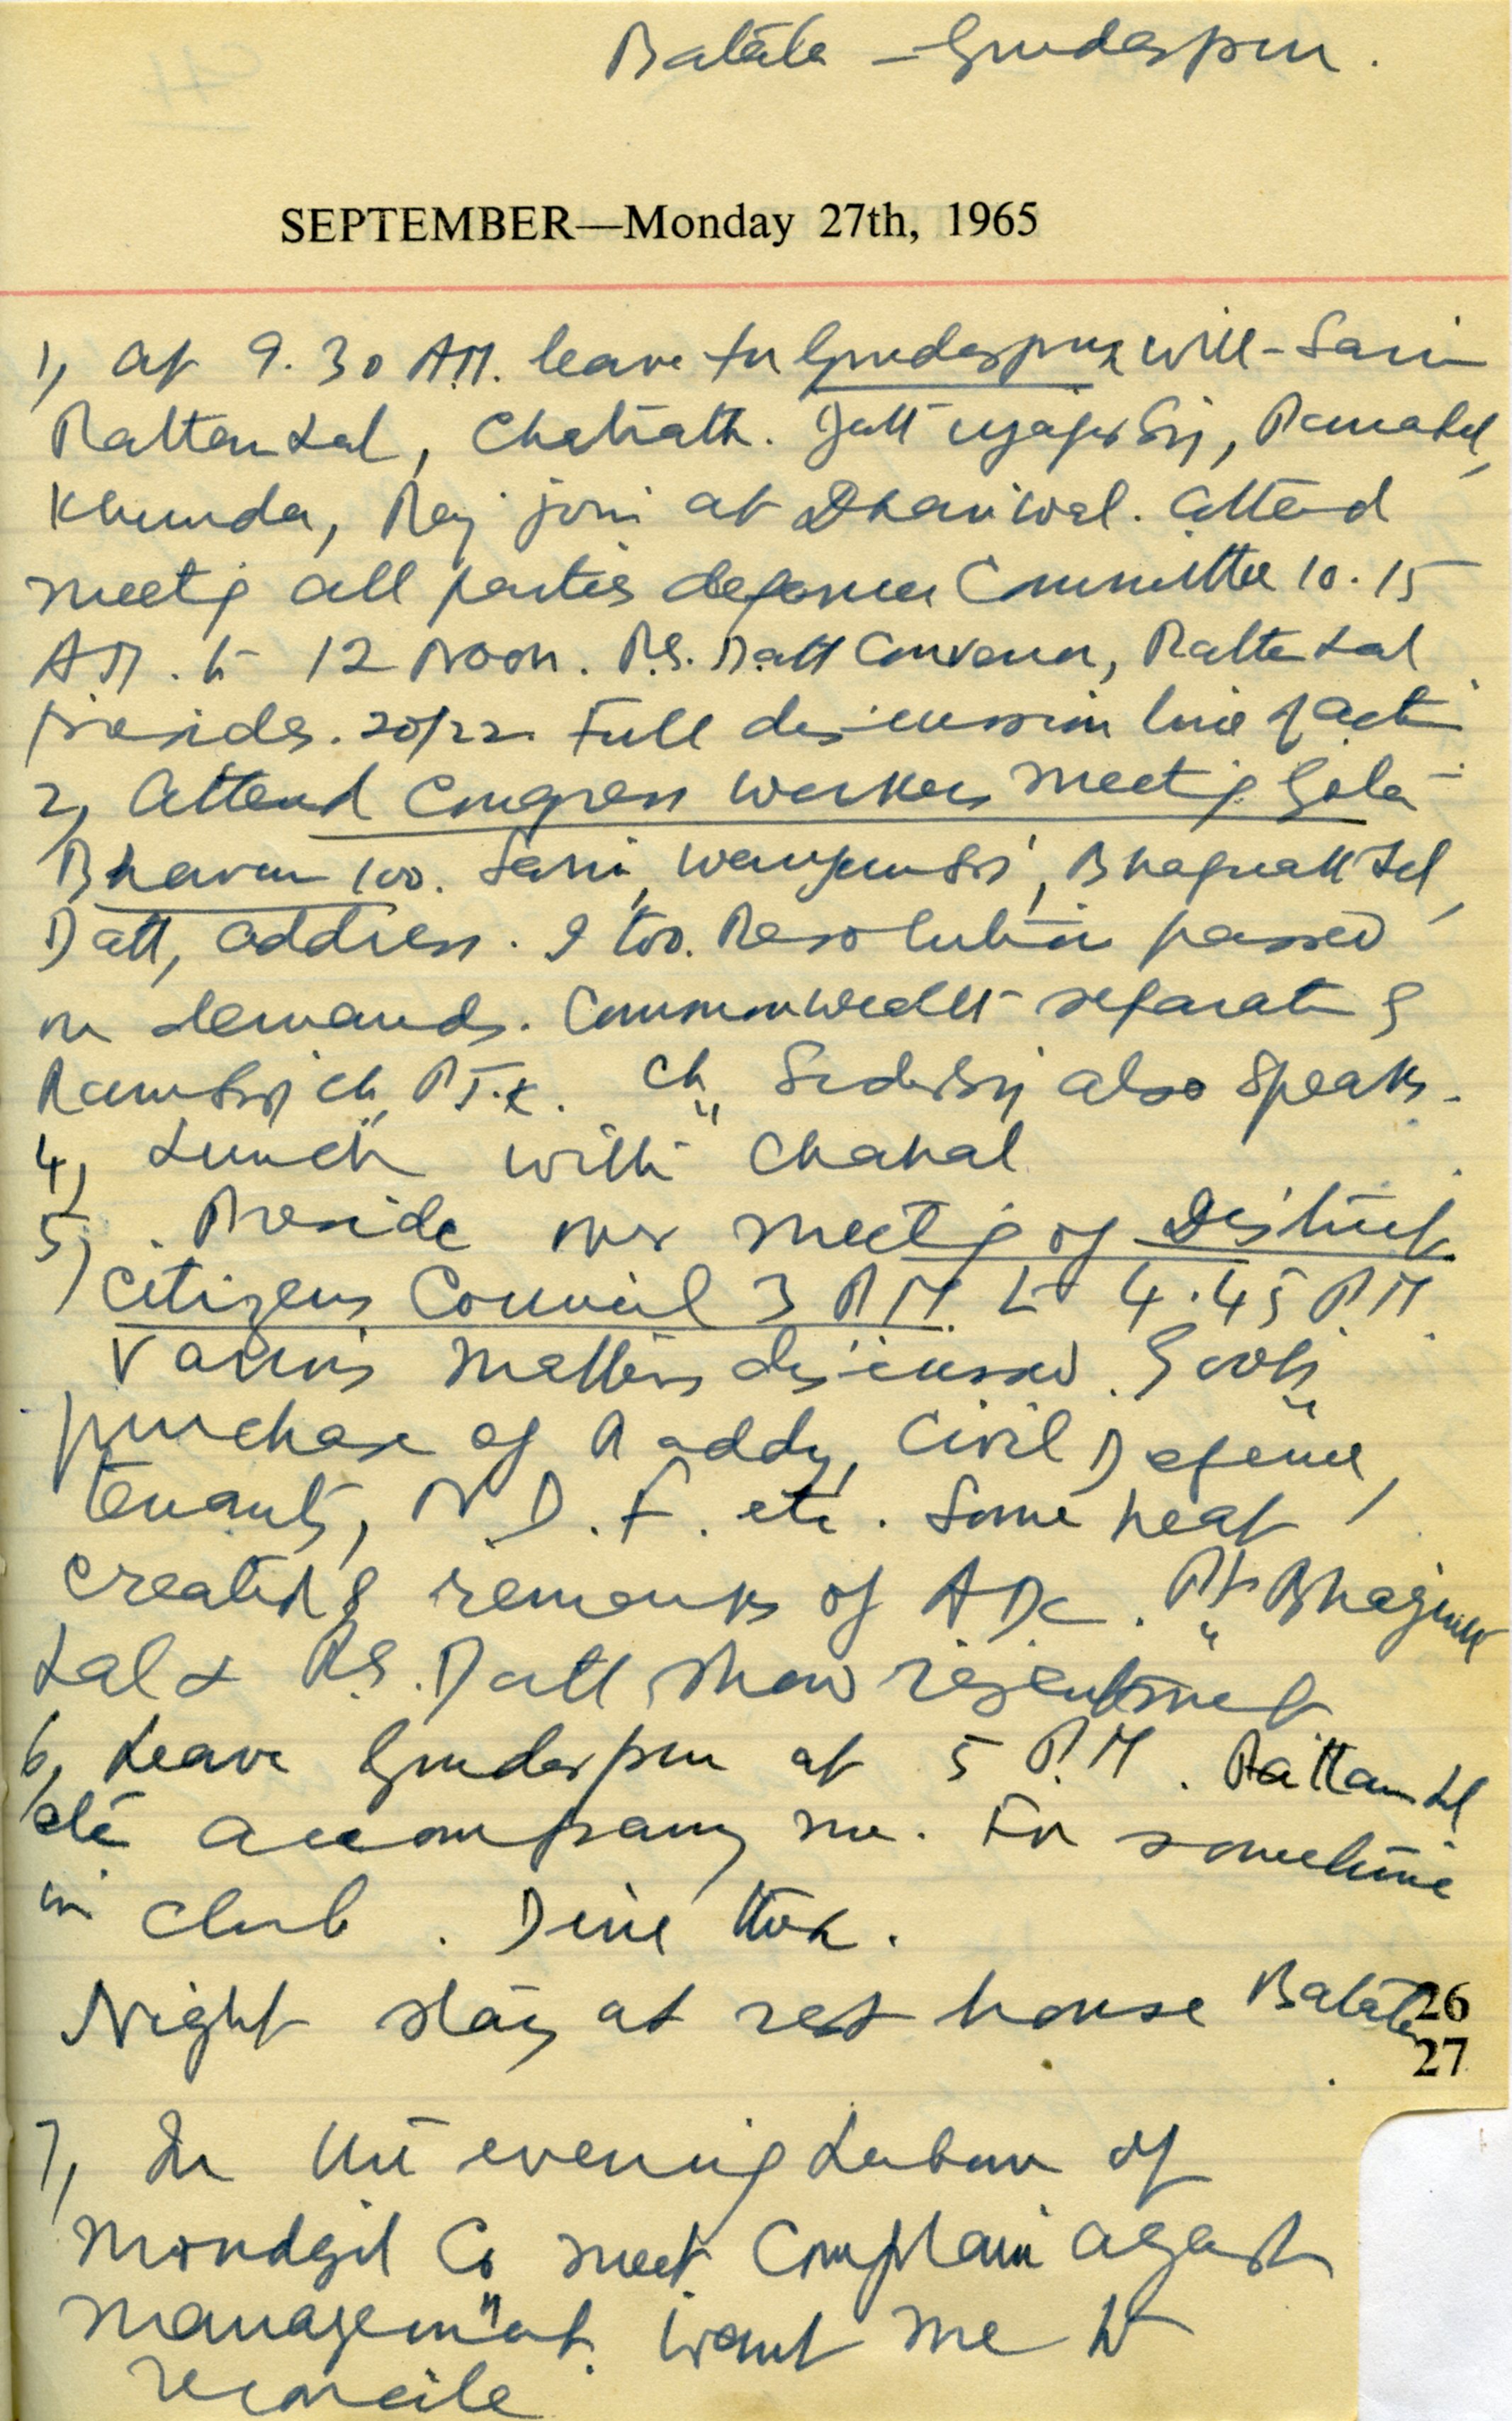 Batala - Gurdaspur.
SEPTEMBER—Monday 27th, 1965
1, At 9.30 A.M. leave for Gurdaspur with Sarin
Rattan Lal, Chatrath. Datt Ujagar Singh,
Khunda, Raj join at Dhariwal. Attend
meeting all parties defence Committee 10.15
A.M. to 12 Noon. P.S. Datt Convener, Rattan Lal
presides. 20/22. Full discussion line of action
2, Attend Congress workers meeting Gola
Bhavan 100. Saini, Bhagwatt Lal,
Datt, address. I too. Resolution passed
on demands. Commonwealth separate &
Ch. also speaks.
4, Lunch with Chahal
5, Preside over meeting of District
Citizens Council 3 P.M. to 4.45 P.M.
Various matters discussed. Goods,
purchase of Paddy, Civil Defence,
tenants, N.D.F. etc. Some heat
created & remarks of ADC. Pt. Bhagwat
Lal & P.S. Datt show resentment
6, Leave Gurdaspur at 5 P.M. Rattan Lal
etc accompany me. For sometime
in club. Dine there.
Night stay at rest house Batala
26
27
7, In the evening Labour of
Mondgil Co meet. Complain against
management. Want me to
reconcile